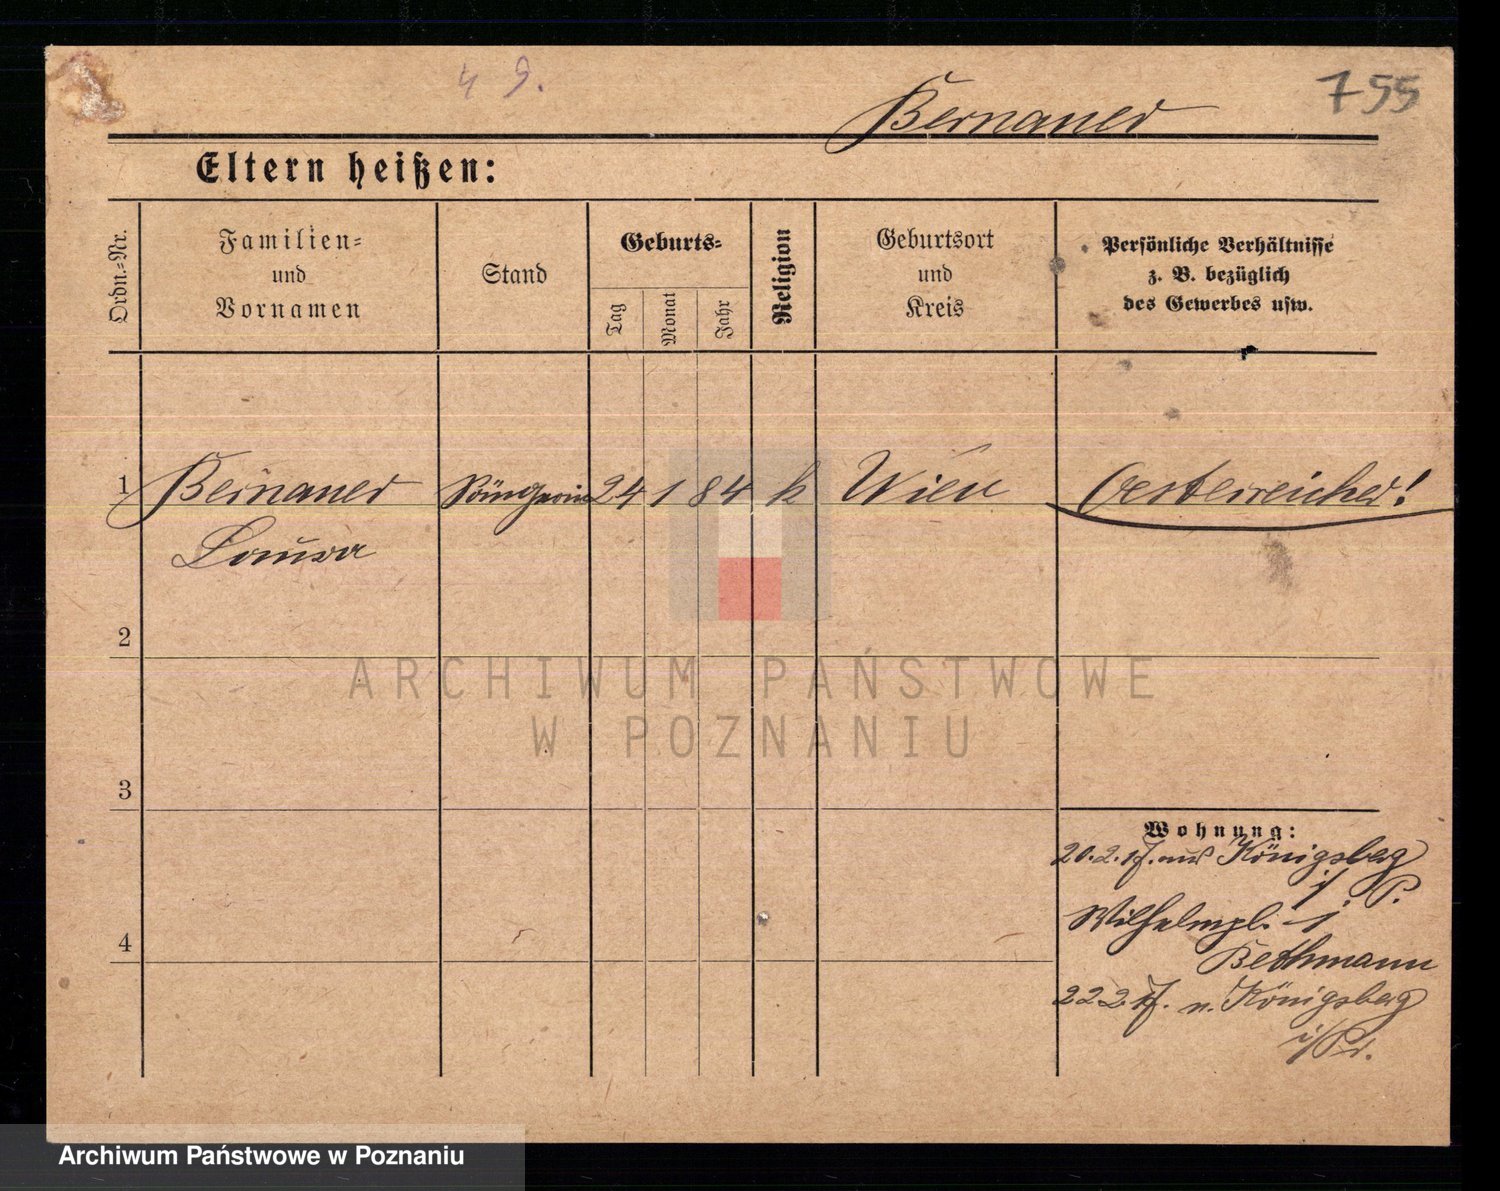 4 9.
Bernauer
755
Eltern heißen:
Ordn.=Nr.
Familien=
und
Vornamen
Stand
Geburts=
Tag
Monat
Jahr
Religion
Geburtsort
und
Kreis
Persönliche Verhältnisse
z. B. bezüglich
des Gewerbes usw.
1 Bernauer Sängerin 24 1 84 k Wien Oesterreicher!
Laura
2
ARCHIWUM PAŃSTWOWE
W POZNANIU
3
Wohnung:
20.2.17. aus Königsberg
i. P.
Wilhelmpl. 1
4
Bethmann
22.2.17. n. Königsberg
i/Pr.
Archiwum Państwowe w Poznaniu